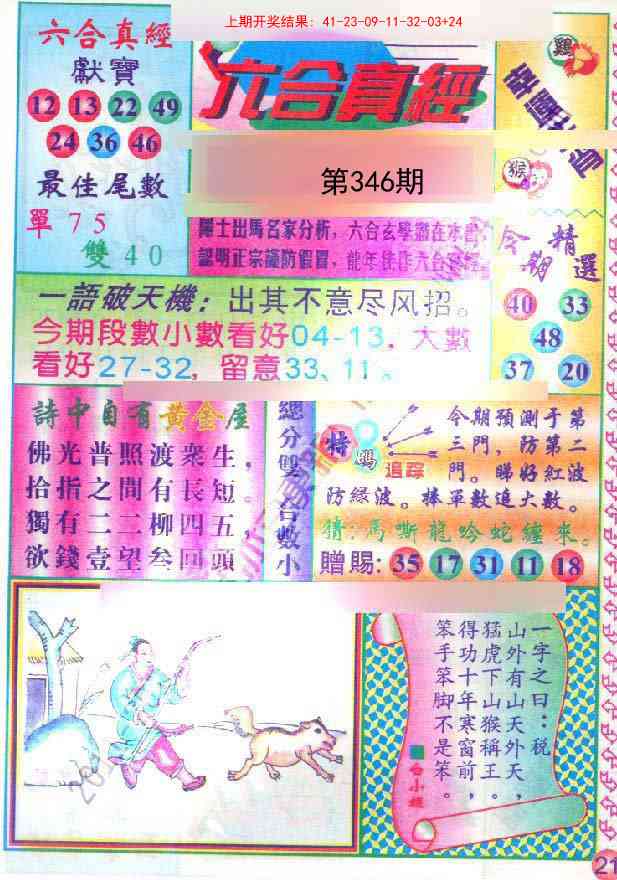 上期开奖结果: 41-23-09-11-32-03+24
六合真經
獻寶
12 13 22 49
24 36 46
最佳尾數
單 7 5
雙 4 0
六合真經
第346期
鷄
猴
今期
精選
40 33
48
37 20
一語破天機：出其不意尽风招。
今期段數小數看好04-13，大數
看好27-32，留意33、11。
詩中自有黃金屋
佛光普照渡衆生，
拾指之間有長短。
獨有二二柳四五，
欲錢壹望叁回頭
總分雙
合數小
特碼
追踪
今期預測于第
三門，防第二
門。睇好紅波
防綠波。捧單數追大數。
猜：馬嘶龍吟蛇纏來。
贈賜：35 17 31 11 18
一字之曰：税
山外有山天外天，
猛虎下山猴稱王。
得功十年寒窗前，
笨手笨脚不是笨。
21